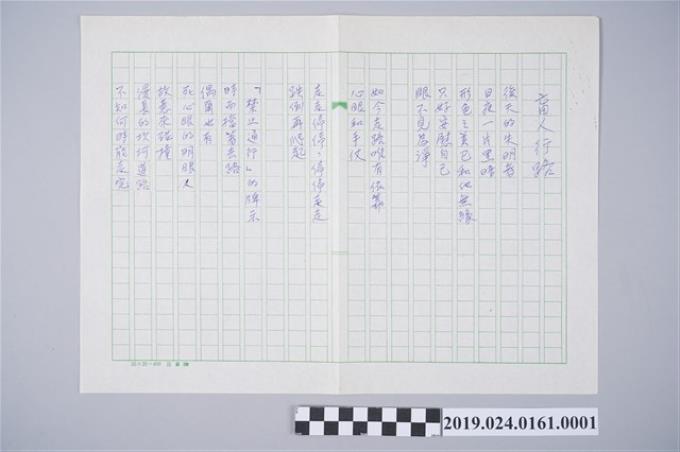 盲人行路
後天的失明者
日夜一片黑暗
形色之美已和他無緣
只好安慰自己
眼不見為淨
如今走路唯有依靠
心眼和手仗
走走停停，停停走走
跌倒再爬起
「禁止通行」的牌示
時而擋著去路
偶爾也有
死心眼的明眼人
故意來碰撞
漫長的坎坷道路
不知何時能走完
2019.024.0161.0001